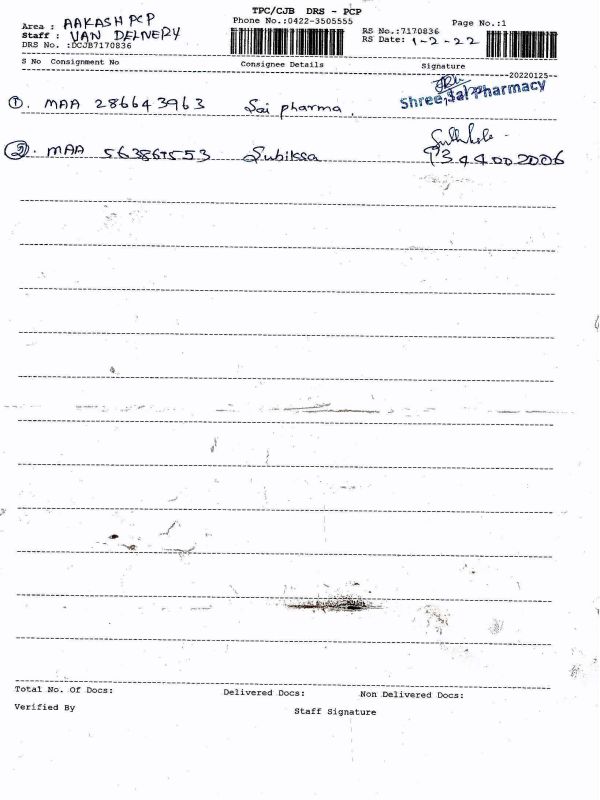 TPC/CJB DRS - PCP
Area : AAKASH PCP
Phone No.:0422-3505555
Page No.:1
Staff : VAN DELIVERY
RS No.:7170836
DRS No. :DCJB7170836
RS Date: 1-2-22
S No Consignment No Consignee Details Signature
--20220125--
①. MAA 286643963 Sai pharma. Shree Sai Pharmacy
②. MAA 563865553 Subiksa
344002006
Total No. Of Docs: Delivered Docs: Non Delivered Docs:
Verified By Staff Signature